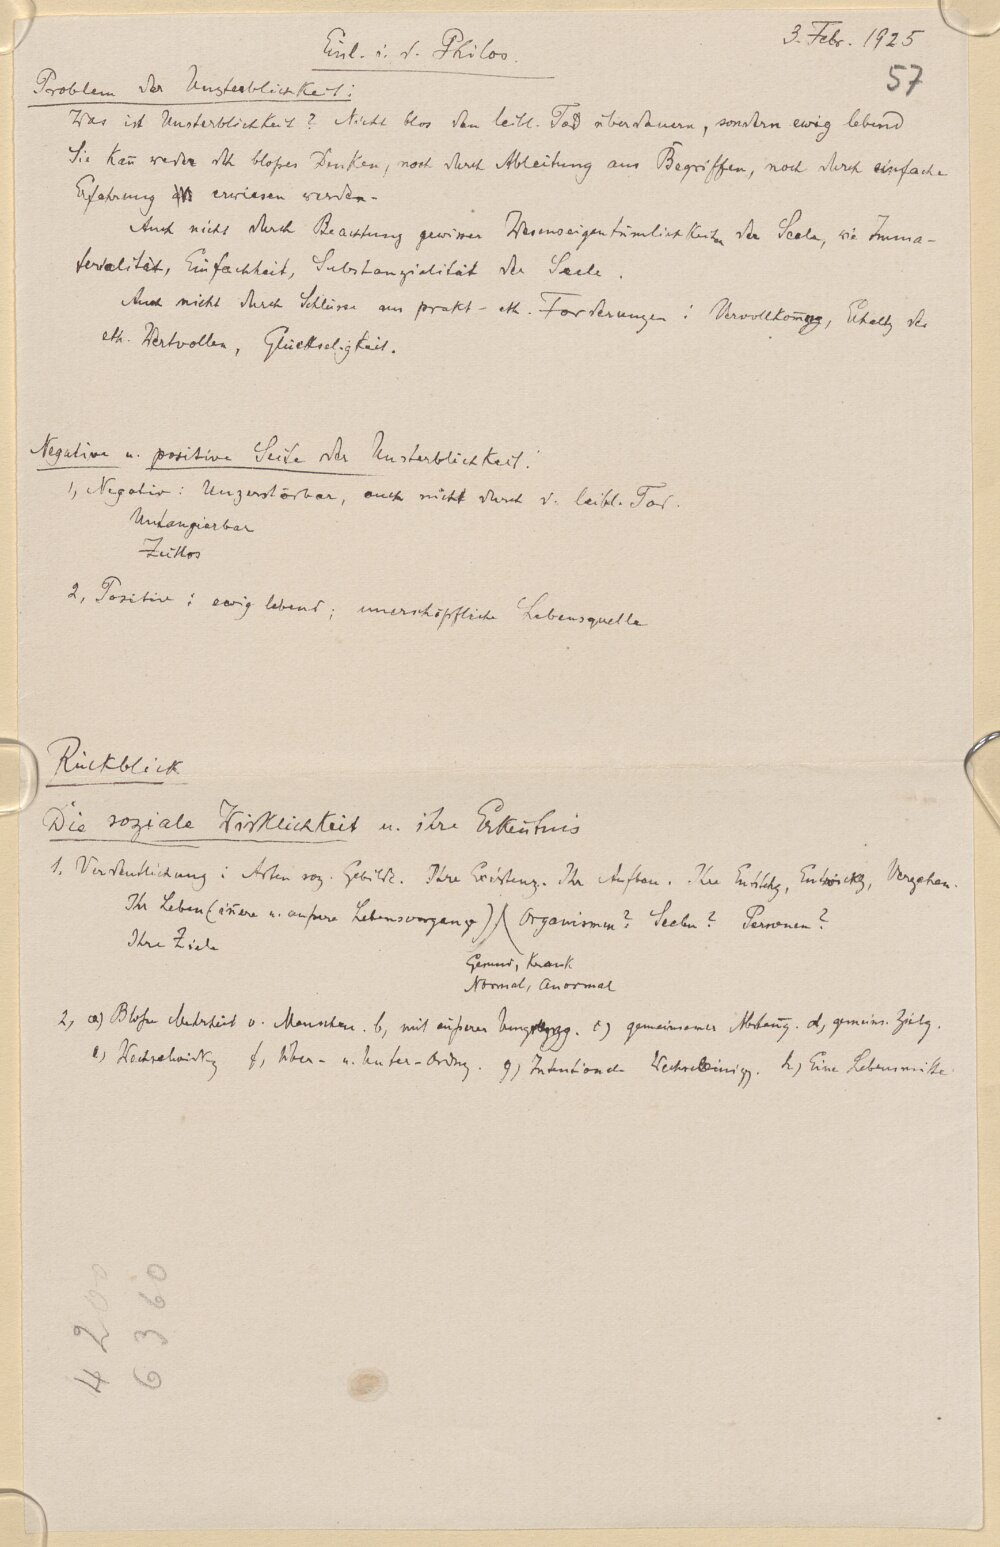 Einl. i. d. Philos.
3. Febr. 1925
57
Problem der Unsterblichkeit:
Was ist Unsterblichkeit? Nicht blos den leibl. Tod überdauern, sondern ewig lebend
Sie kañ weder dch bloßes Denken, noch durch Ableitung aus Begriffen, noch durch einfache
Erfahrung erwiesen werden.
Auch nicht durch Beachtung gewisser Wesenseigentümlichkeiten der Seele, wie Imma-
terialität, Einfachheit, Substanzialität der Seele.
Auch nicht durch Schlüsse aus prakt-eth. Forderungen: Vervollkom̄ng, Erhaltg des
eth. Wertvollen, Glückseligkeit.
Negative u. positive Seite der Unsterblichkeit:
1, Negativ: Unzerstörbar, auch nicht durch d. leibl. Tod.
Untangierbar
Zeitlos
2, Positiv: ewig lebend; unerschöpfliche Lebensquelle
Rückblick
Die soziale Wirklichkeit u. ihre Erkeñtnis
1, Verdeutlichung: Arten soz. Gebilde. Ihre Existenz. Ihr Aufbau. Ihre Entstehg, Entwicklg, Vergehen.
Ihr Leben (iñere u. äußere Lebensvorgänge) Organismen? Seelen? Personen?
Ihre Ziele
Gesund, Krank
Normal, Anormal
2, a) Bloße Mehrheit v. Menschen. b, mit äußerer c) gemeinsamer d, gemeins. Zielg.
e, Wechselwirkg f, Über- u. Unter-Ordng. g) Intentionale h) Eine Lebensmitte
4200
6360